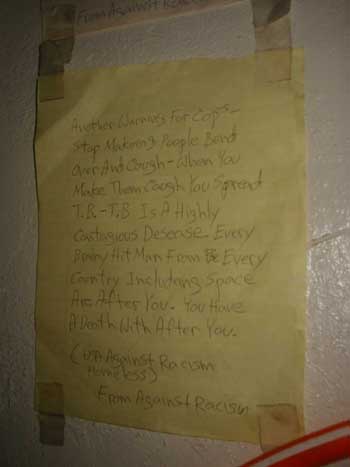 From Against Racism
Another Warnings For Cops -
Stop Makeing People Bend
over And Cough - When You
Make Them Cough You Spread
T.B. - T.B Is A Highly
Contagious Desease Every
Brainy Hit Man From Every
Country Includang Space
Are After You - You Have
A Death With After You -
(USA Against Racism
Homeless)
From Against Racism